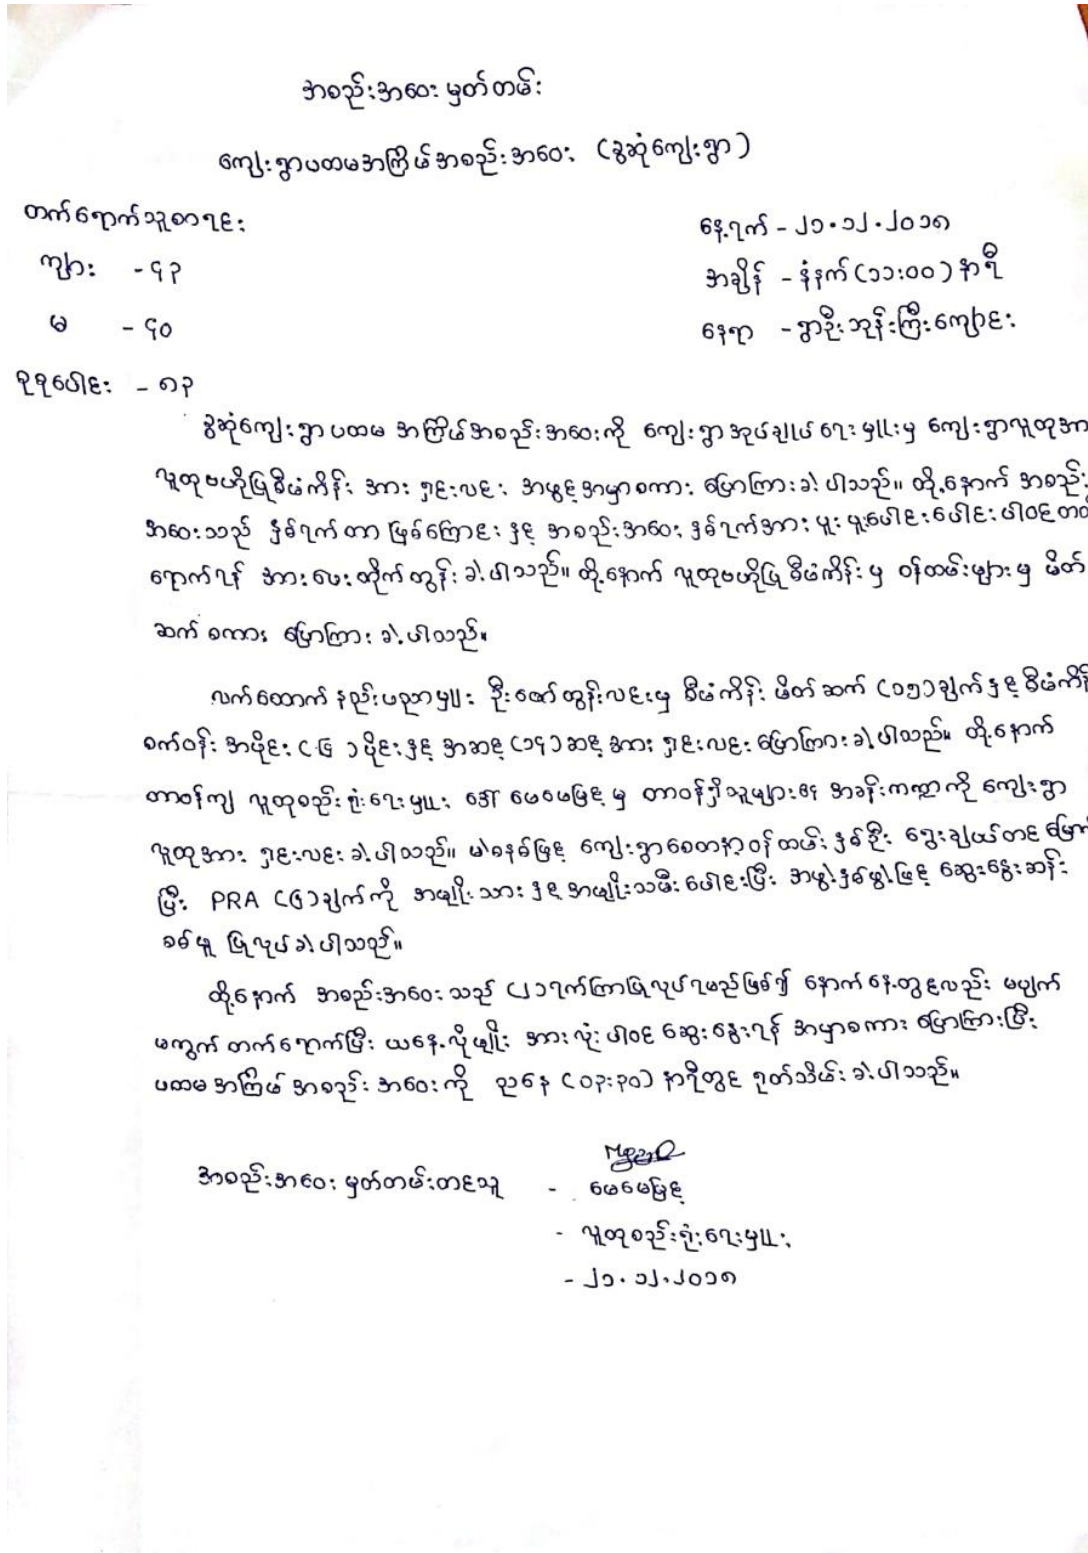 အစည်းအဝေး မှတ်တမ်း
ကျေးရွာပထမအကြိမ်အစည်းအဝေး (ခွဆုံကျေးရွာ)
တက်ရောက်သူစာရင်း
နေ့ရက် - ၂၁.၁၂.၂၀၁၈
ကျား - ၄၃
အချိန် - နံနက် (၁၁:၀၀) နာရီ
မ - ၄၀
နေရာ - ရွာဦးဘုန်းကြီးကျောင်း
စုစုပေါင်း - ၈၃
ခွဆုံကျေးရွာ ပထမ အကြိမ်အစည်းအဝေးကို ကျေးရွာအုပ်ချုပ်ရေးမှူးမှ ကျေးရွာလူထုအား
လူထုဗဟိုပြုစီမံကိန်း အား ရှင်းလင်း အဖွင့်အမှာစကား ပြောကြားခဲ့ပါသည်။ ထို့နောက် အစည်း
အဝေးသည် နှစ်ရက်တာ ဖြစ်ကြောင်း နှင့် အစည်းအဝေး နှစ်ရက်အား ပူးပူးပေါင်းပေါင်း ပါဝင်တတ်
ရောက်ရန် အားပေးတိုက်တွန်းခဲ့ပါသည်။ ထို့နောက် လူထုဗဟိုပြုစီမံကိန်းမှ ဝန်ထမ်းများမှ မိတ်
ဆက်စကား ပြောကြားခဲ့ပါသည်။
လက်ထောက်နည်းပညာမှူး ဦးဇော်တွန်းလင်းမှ စီမံကိန်း မိတ်ဆက် (၁၅)ချက်နှင့် စီမံကိန်း
စက်ဝန်း အပိုင်း (၄)ပိုင်းနှင့် အဆင့် (၁၄)ဆင့်အား ရှင်းလင်းပြောကြားခဲ့ပါသည်။ ထို့နောက်
တာဝန်ကျ လူထုစည်းရုံးရေးမှူး ဒေါ်မေမေမြင့်မှ တာဝန်ရှိသူများ၏ အခန်းကဏ္ဍကို ကျေးရွာ
လူထုအား ရှင်းလင်းခဲ့ပါသည်။ မဲစနစ်ဖြင့် ကျေးရွာစေတနာ့ဝန်ထမ်း နှစ်ဦး ရွေးချယ်တင်မြှောက်
ပြီး PRA (၄)ချက်ကို အမျိုးသားနှင့် အမျိုးသမီးပေါင်းပြီး အဖွဲ့နှစ်ဖွဲ့ဖြင့် ဆွေးနွေးဆန်း
စစ်မှု ပြုလုပ်ခဲ့ပါသည်။
ထို့နောက် အစည်းအဝေးသည် (၂)ရက်ကြာပြုလုပ်ရမည်ဖြစ်၍ နောက်နေ့တွင်လည်း မပျက်
မကွက် တက်ရောက်ပြီး ယနေ့လိုမျိုး အားလုံးပါဝင် ဆွေးနွေးရန် အမှာစကား ပြောကြားပြီး
ပထမအကြိမ် အစည်းအဝေးကို ညနေ (၀၃:၃၀) နာရီတွင် ရုတ်သိမ်းခဲ့ပါသည်။
အစည်းအဝေး မှတ်တမ်းတင်သူ - မေမေမြင့်
- လူထုစည်းရုံးရေးမှူး
- ၂၁.၁၂.၂၀၁၈